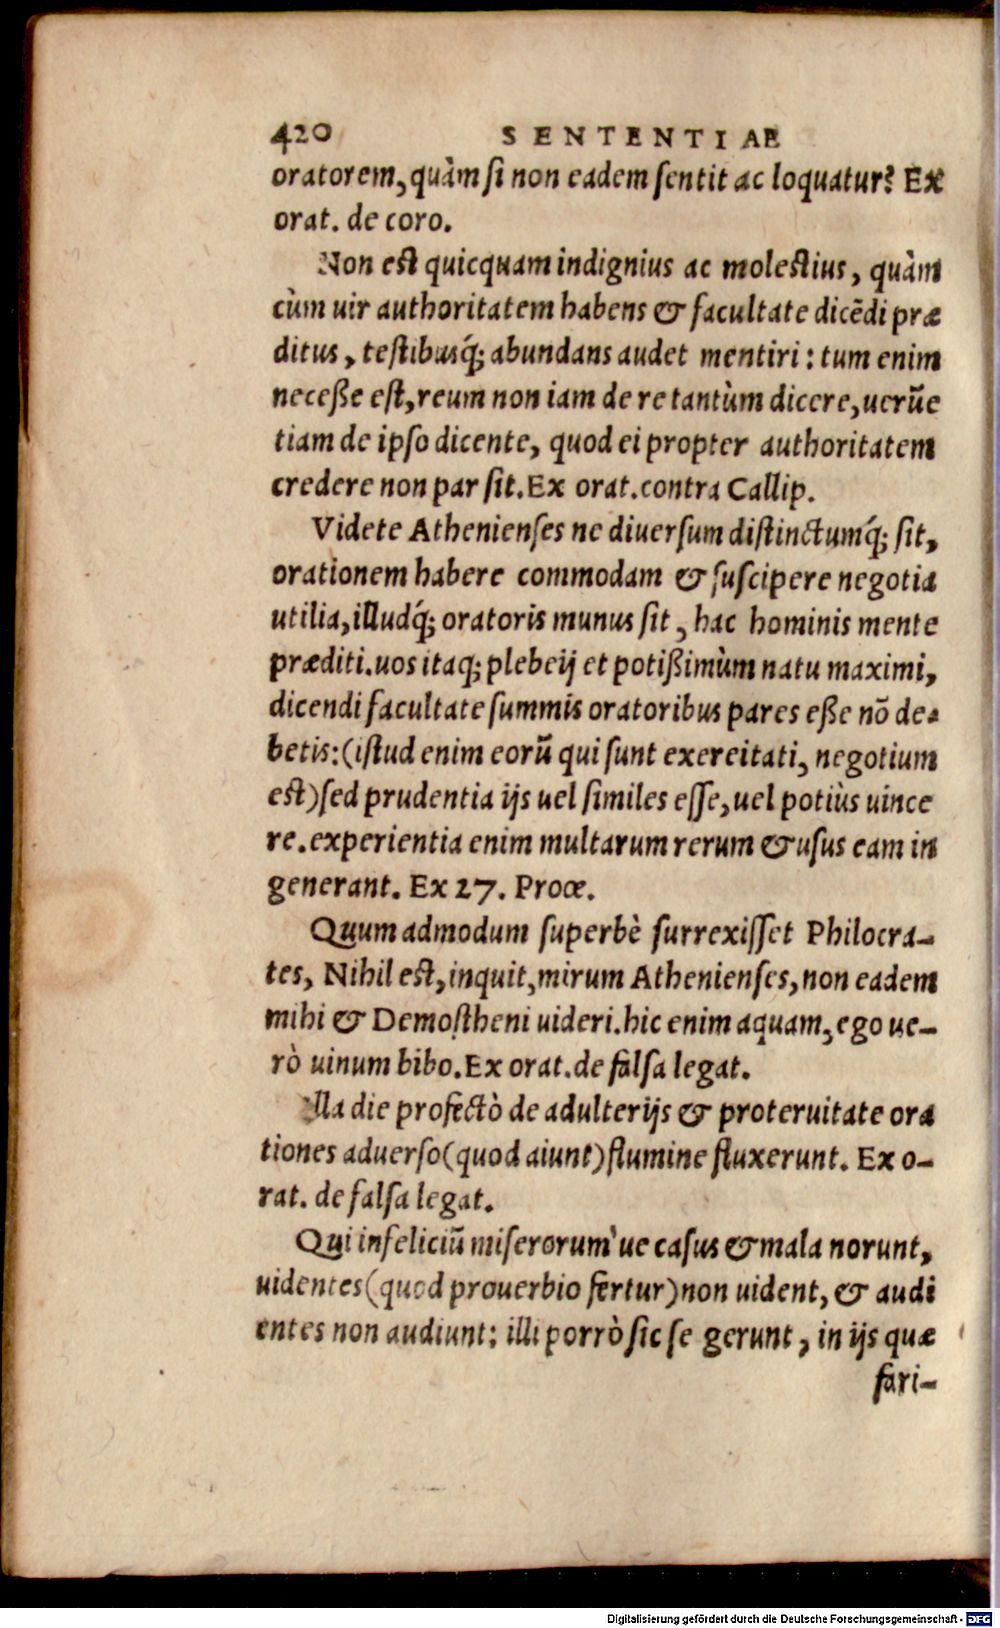 420 SENTENTIAE
oratorem, quàm si non eadem sentit ac loquatur? Ex
orat. de coro.
Non est quicquam indignius ac molestius, quàm
cùm uir authoritatem habens & facultate dicẽdi præ
ditus, testibusq́; abundans audet mentiri: tum enim
neceße est, reum non iam de re tantùm dicere, uerũe
tiam de ipso dicente, quod ei propter authoritatem
credere non par sit. Ex orat. contra Callip.
Videte Athenienses ne diuersum distinctumq́; sit,
orationem habere commodam & suscipere negotia
utilia, illudq́; oratoris munus sit, hac hominis mente
præditi. uos itaq; plebeij et potißimùm natu maximi,
dicendi facultate summis oratoribus pares eße nõ de-
betis: (istud enim eorũ qui sunt exereitati, negotium
est) sed prudentia ijs uel similes esse, uel potiùs uince
re. experientia enim multarum rerum & usus eam in
generant. Ex 27. Proœ.
Quum admodum superbè surrexisset Philocra-
tes, Nihil est, inquit, mirum Athenienses, non eadem
mihi & Demostheni uideri. hic enim aquam, ego ue-
rò uinum bibo. Ex orat. de falsa legat.
Illa die profectò de adulterijs & proteruitate ora
tiones aduerso (quod aiunt) flumine fluxerunt. Ex o-
rat. de falsa legat.
Qui infeliciũ miserorum'ue casus & mala norunt,
uidentes (quod prouerbio fertur) non uident, & audi
entes non audiunt: illi porrò sic se gerunt, in ijs quæ
fari-
Digitalisierung gefördert durch die Deutsche Forschungsgemeinschaft - DFG